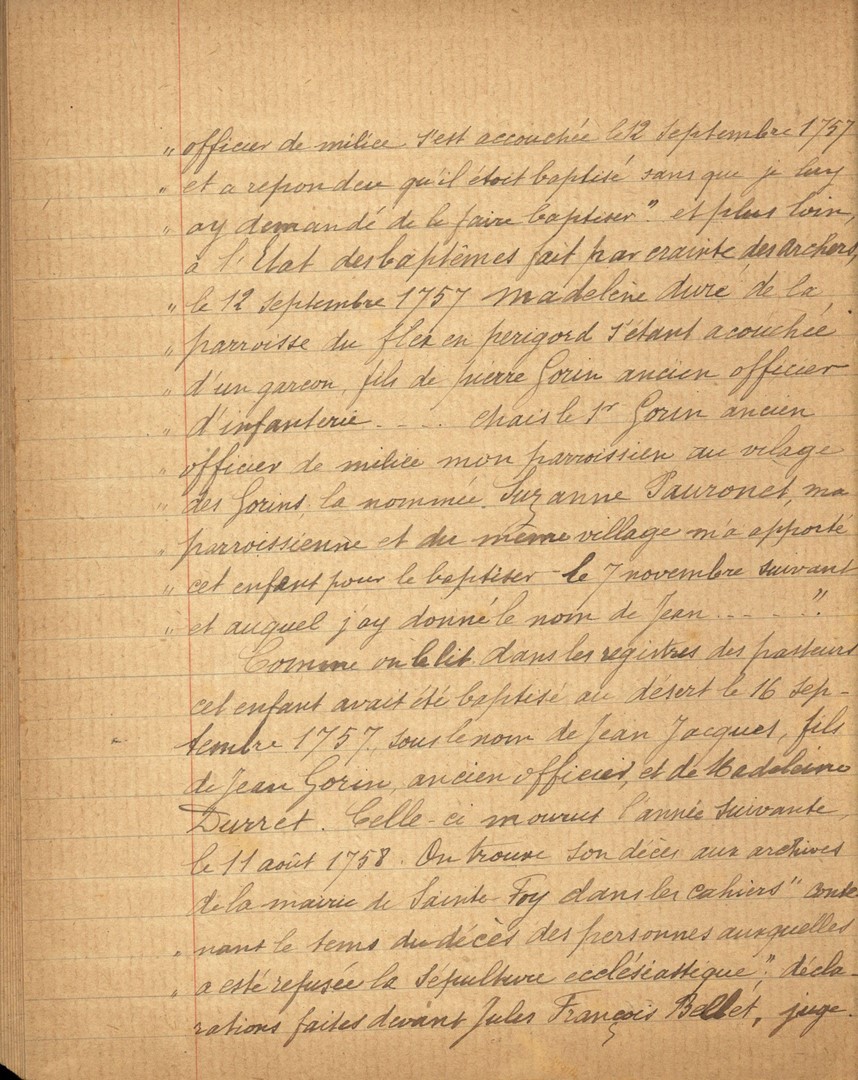 „ officier de milice s'est accouchée le 12 septembre 1757
„ et a repondeu qu'il étoit baptisé sans que je luy
„ ay demandé de le faire baptiser". et plus loin,
à l'Etat des baptêmes fait par crainte des archers,
„ le 12 septembre 1757 madelene duré de la
„ parroisse du fleix en perigord s'étant acouchée
„ d'un garcon, fils de pierre Gorin ancien officier
„ d'infanterie - - . . chais le Sr Gorin ancien
„ officier de milice mon parroissien au vilage
„ des Gorins, la nommée Suzanne Pauronet, ma
„ parroissienne et du même village m'a apporté
„ cet enfant pour le baptiser - le 7 novembre suivant
„ et auquel j'ay donné le nom de Jean - - - - ".
Comme on le lit dans les registres des pasteurs
cet enfant avait été baptisé au désert le 16 sep-
tembre 1757, sous le nom de Jean Jacques, fils
de Jean Gorin, ancien officier, et de Madeleine
Durret. Celle-ci mourut l'année suivante,
le 11 août 1758. On trouve son décès aux archives
de la mairie de Sainte-Foy dans les cahiers " conte
„ nant le tems du décès des personnes auxquelles
„ a esté refusée la sépulture ecclésiastique", décla-
rations faites devant Jules François Bellet, juge.